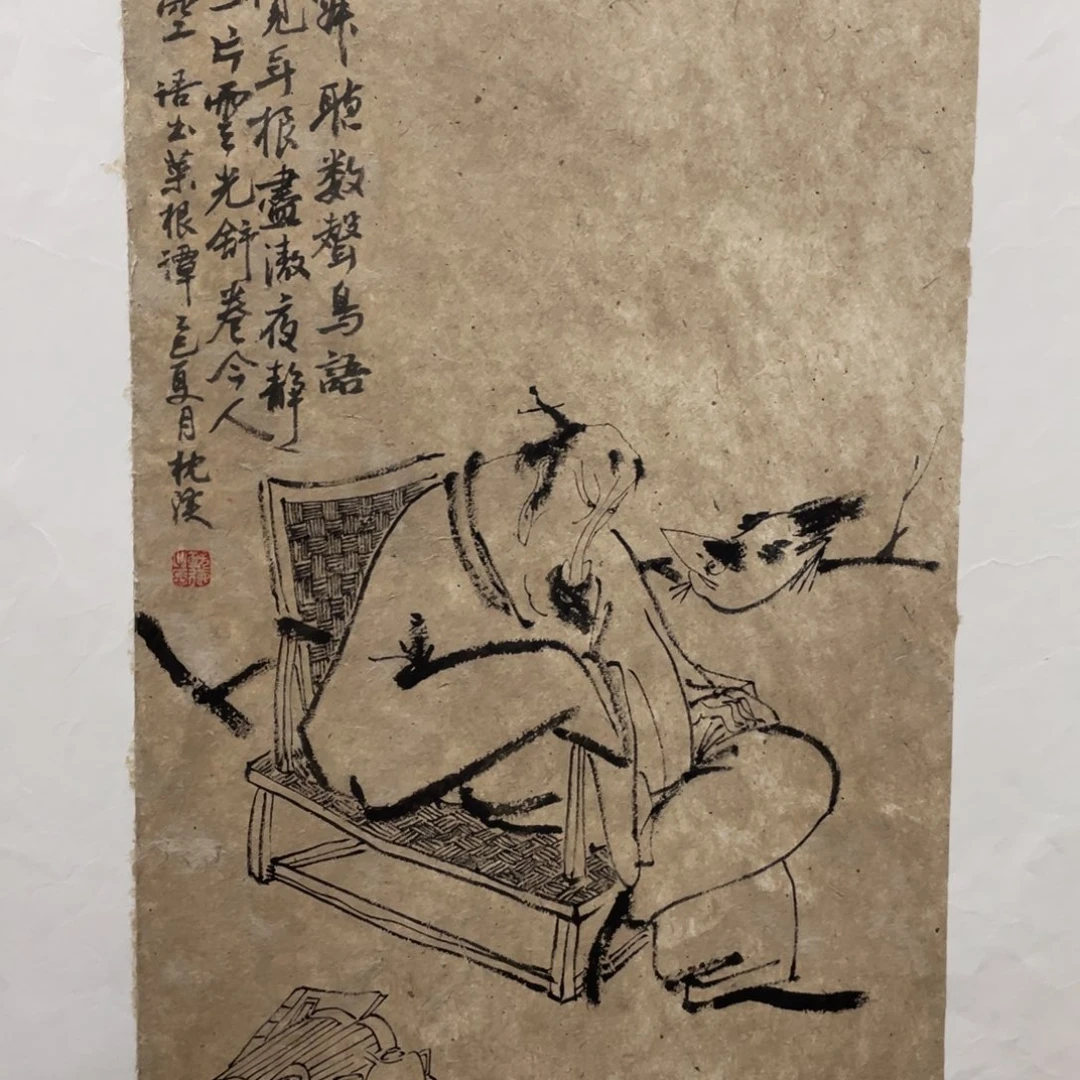 聽数聲鳥語
耳根盡澈夜静
一片雲光舒卷今人
空 语出菜根譚 乙巳夏月枕溪